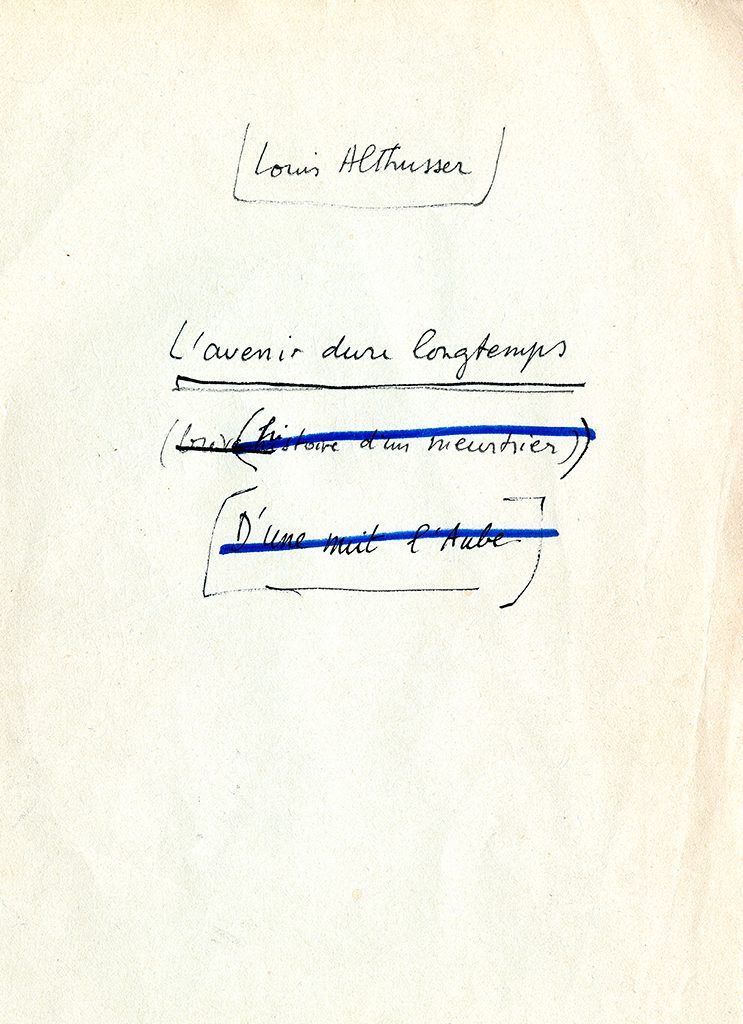 Louis Althusser
L'avenir dure longtemps
( (histoire d'un meurtrier))
D'une nuit l'Aube